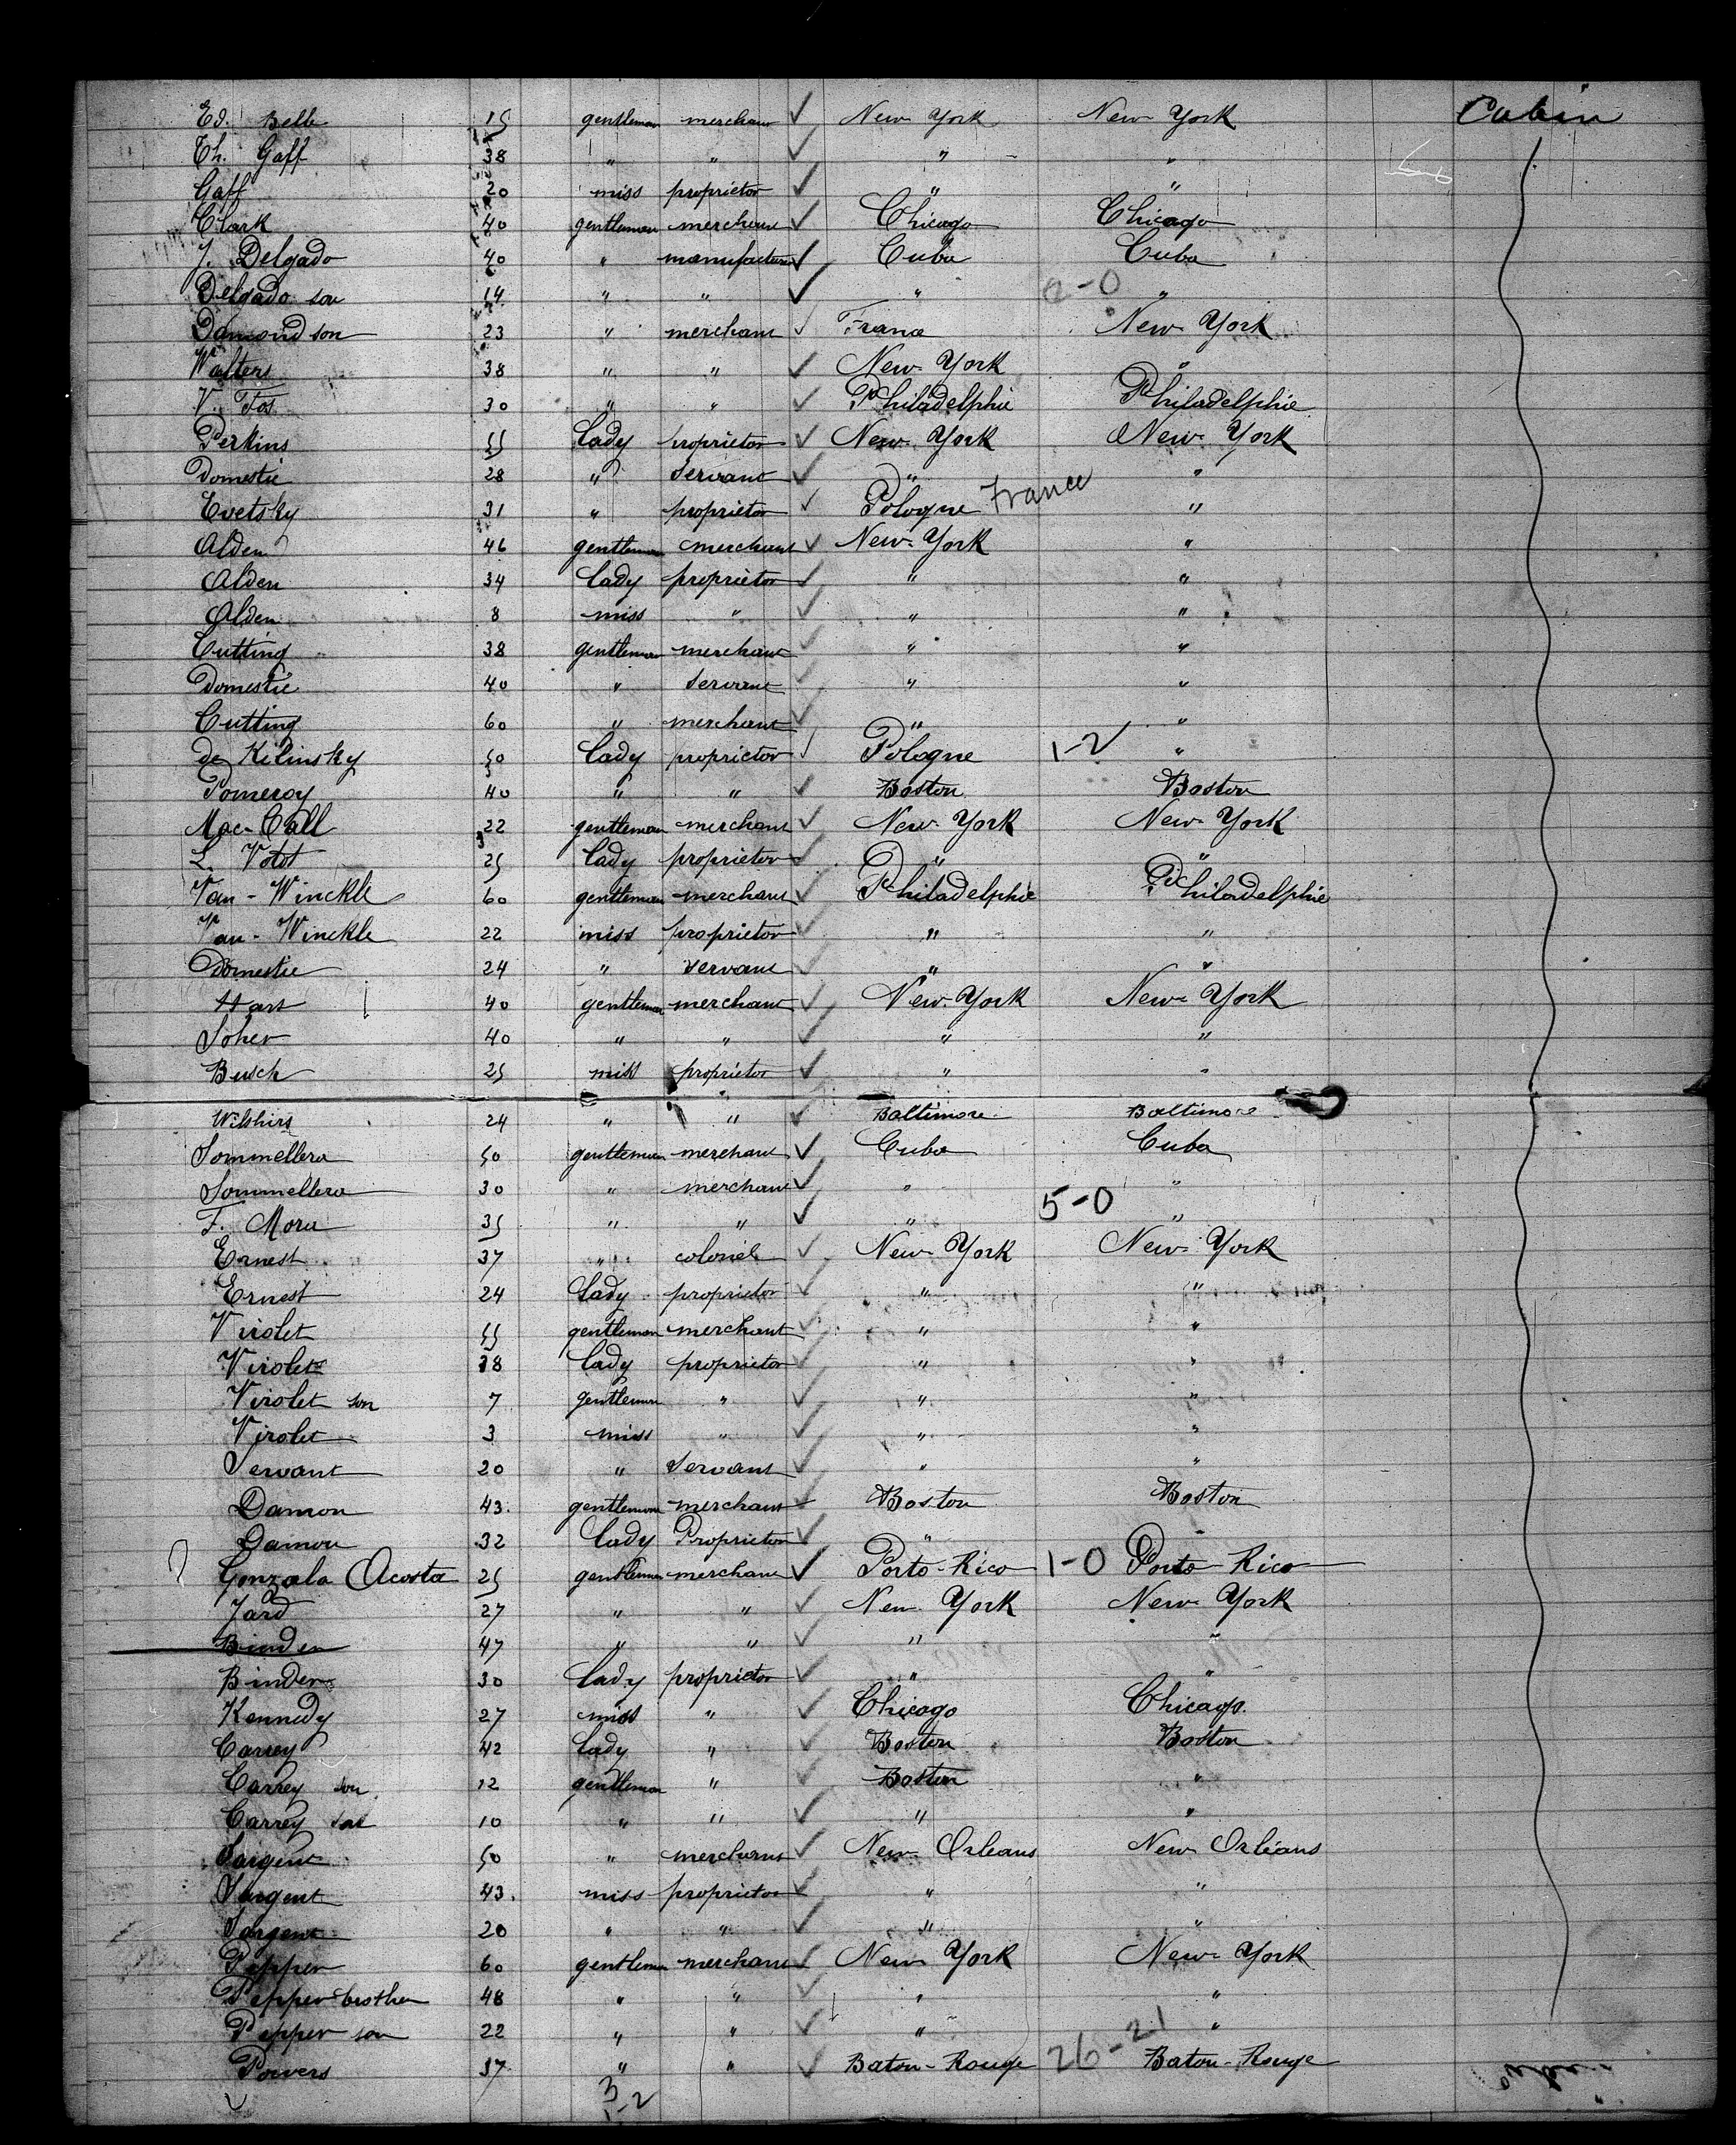 Ed. Belle 15 gentleman merchant ✓ New York New York Cabin
Th. Gaff 38 " " ✓ " "
Gaff 20 miss proprietor ✓ " "
Clark 40 gentleman merchant ✓ Chicago Chicago
J. Delgado 40 " manufacturer ✓ Cuba Cuba
Delgado son 14 " " ✓ " 2-0 "
Damond son 23 " merchant ✓ France New York
Walters 38 " " ✓ New York "
V. Fos 30 " " ✓ Philadelphie Philadelphie
Perkins 55 lady proprietor ✓ New York New York
Domestic 28 " servant ✓ " "
Evetsky 31 " proprietor ✓ Pologne France "
Alden 46 gentleman merchant ✓ New York "
Alden 34 lady proprietor ✓ " "
Alden 8 miss " ✓ " "
Cutting 38 gentleman merchant ✓ " "
Domestic 40 " servant ✓ " "
Cutting 60 " merchant ✓ " "
de Kilinsky 50 lady proprietor ✓ Pologne 1-2 "
Pomeroy 40 " " ✓ Boston Boston
Mac-Call 22 gentleman merchant ✓ New York New York
L. Votot 25 lady proprietor ✓ " "
Van-Winckle 60 gentleman merchant ✓ Philadelphie Philadelphie
Van-Winckle 22 miss proprietor ✓ " "
Domestic 24 " servant ✓ " "
Hart 40 gentleman merchant ✓ New York New York
Soher 40 " " ✓ " "
Busch 25 miss proprietor ✓ " "
Wilshirs 24 " " ✓ Baltimore Baltimore
Sommellera 50 gentleman merchant ✓ Cuba Cuba
Sommellera 30 " merchant ✓ " "
F. Mora 35 " " ✓ " 5-0 "
Ernest 37 " colonel ✓ New York New York
Ernest 24 lady proprietor ✓ " "
Virolet 55 gentleman merchant ✓ " "
Virolet 38 lady proprietor ✓ " "
Virolet son 7 gentleman " ✓ " "
Virolet 3 miss " ✓ " "
Servant 20 " servant ✓ " "
Damon 43. gentleman merchant ✓ Boston Boston
Damon 32 lady Proprietor ✓ " "
Gonzalo Acosta 25 gentleman merchant ✓ Porto-Rico 1-0 Porto-Rico
Jard 27 " " ✓ New York New York
Binder 47 " " ✓ " "
Binder 30 lady proprietor ✓ " "
Kennedy 27 miss " ✓ Chicago Chicago.
Carrey 42 lady " ✓ Boston Boston
Carrey son 12 gentleman " ✓ Boston "
Carrey son 10 " " ✓ " "
Sargent 50 " merchant ✓ New Orleans New Orléans
Sargent 43. miss proprietor ✓ " "
Sargent 20 " " ✓ " "
Pepper 60 gentleman merchant ✓ New York New York
Pepper brother 48 " " ✓ " "
Pepper son 22 " " ✓ " "
Powers 37 " " ✓ Baton-Rouge 26-21 Baton-Rouge
3
1-2